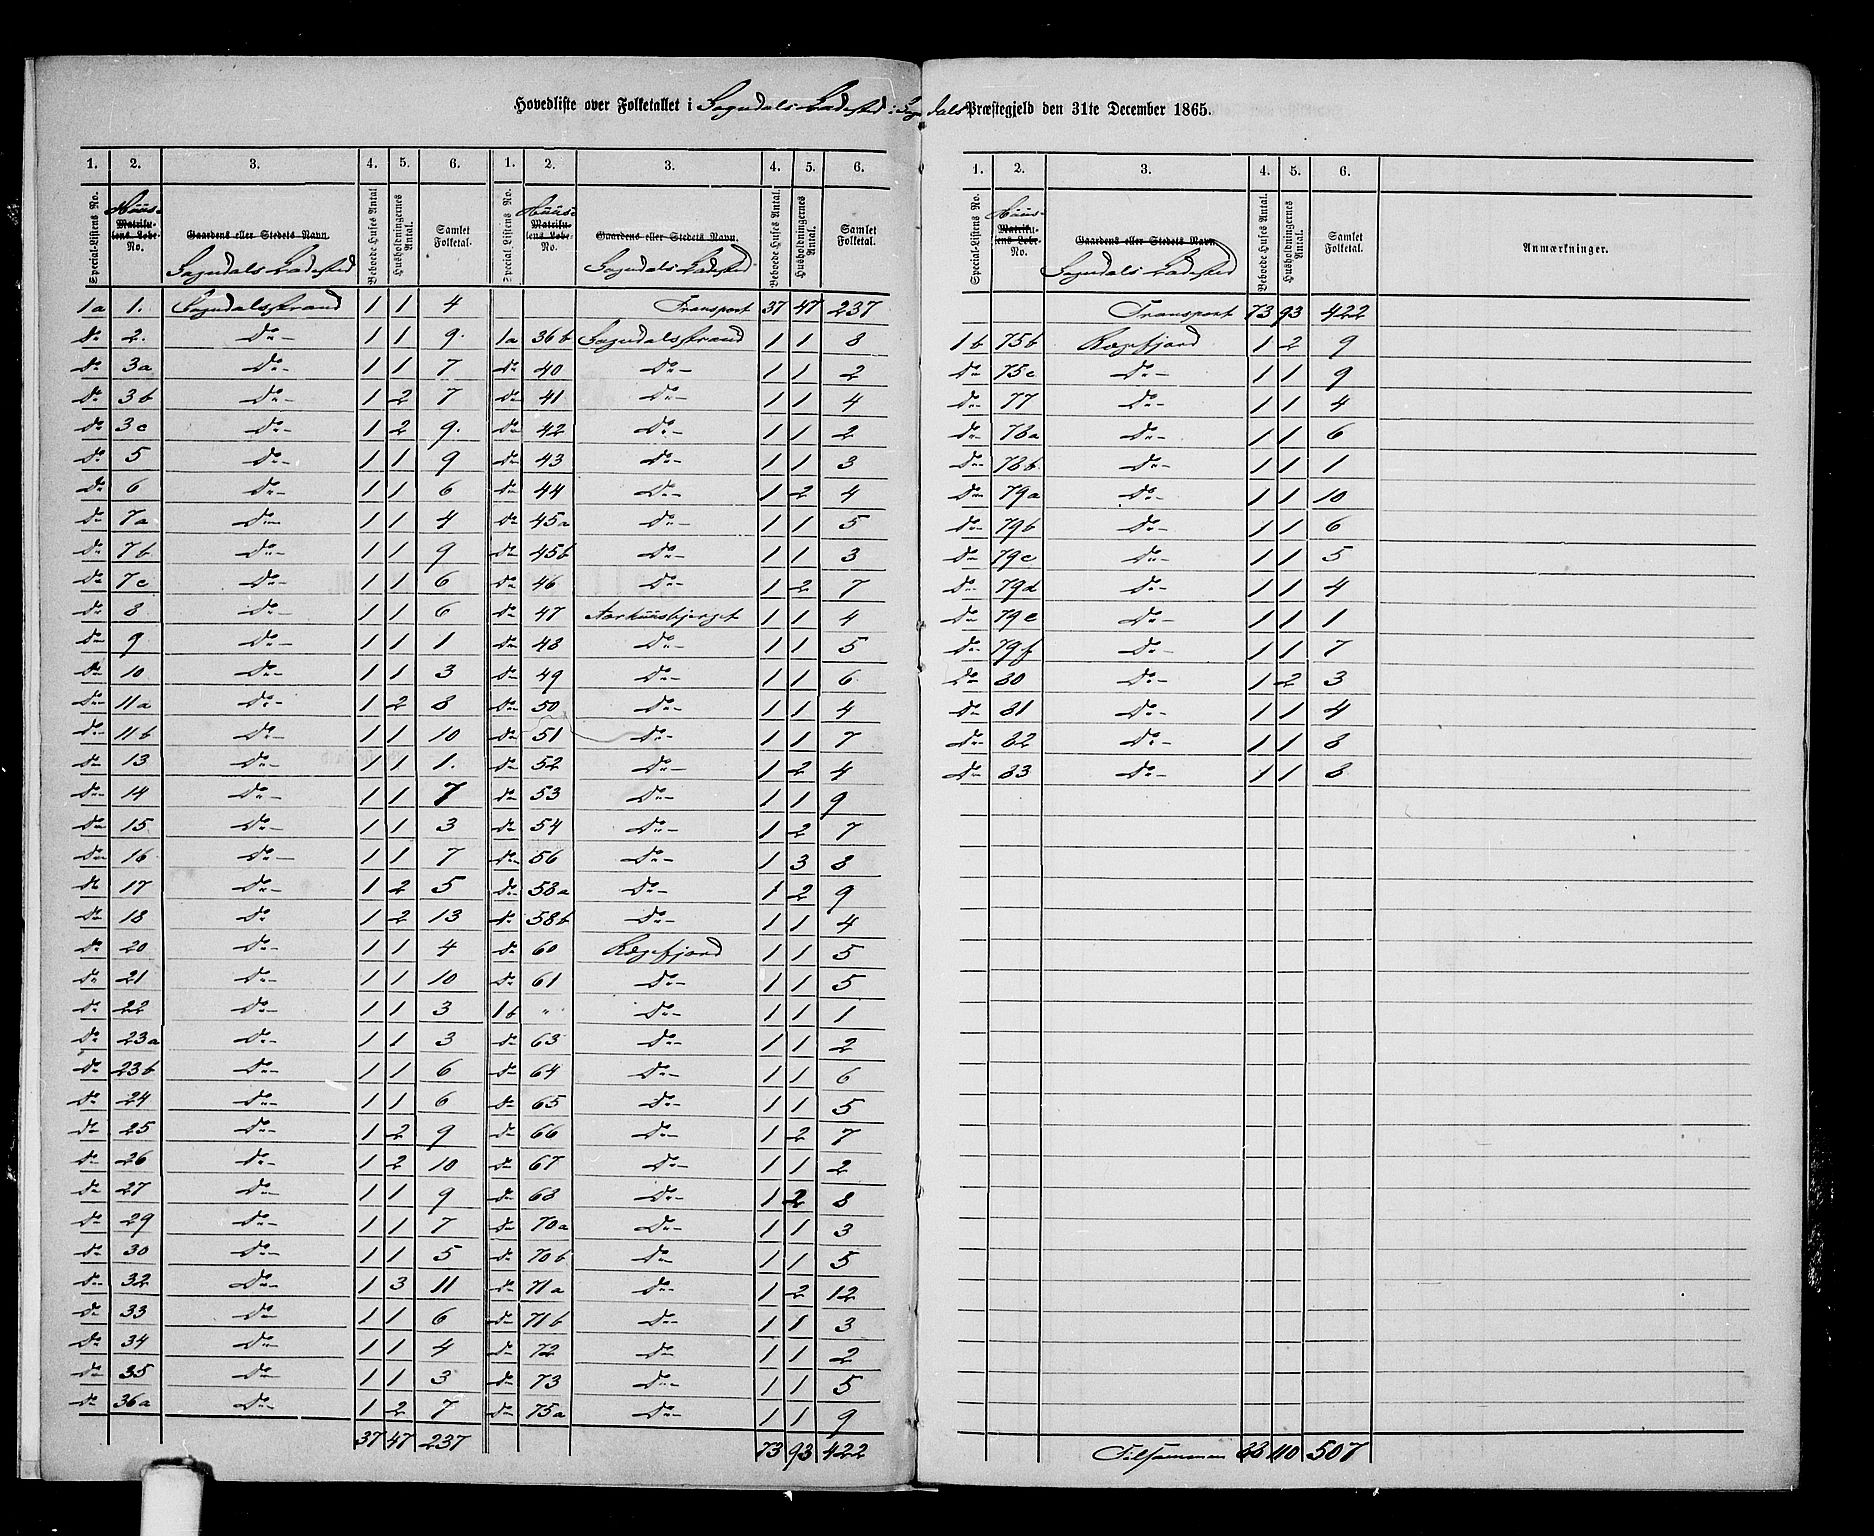 Hovedliste over Folketallet i Sogndals Ladested i Sogndals Præstegjeld den 31te December 1865.
1. 2. 3. 4. 5. 6.
Special-Listens No. Huus- Matrikulens Løbe-No. Gaardens eller Stedets Navn. Sogndals Ladested Beboede Huses Antal. Husholdningernes Antal. Samlet Folketal.
1a 1. Sogndalsstrand 1 1 4
do 2. do 1 1 9.
do 3a do 1 1 7
do 3b do 1 2 7
do 3c do 1 2 9.
do 5 do 1 1 9
do 6 do 1 1 6
do 7a do 1 1 4
do 7b do 1 1 9
do 7c do 1 1 6
do 8 do 1 1 6
do 9 do 1 1 1
do 10 do 1 1 3
do 11a do 1 2 8
do 11b do 1 1 10
do 13 do 1 1 1.
do 14 do 1 1 7
do 15 do 1 1 3
do 16 do 1 1 7
do 17 do 1 2 5
do 18 do 1 2 13
do 20 do 1 1 4
do 21 do 1 1 10
do 22 do 1 1 3
do 23a do 1 1 3
do 23b do 1 1 6
do 24 do 1 1 6
do 25 do 1 2 9
do 26 do 1 2 10
do 27 do 1 1 9
do 29 do 1 1 7
do 30 do 1 1 5
do 32 do 1 3 11
do 33 do 1 1 6
do 34 do 1 1 4
do 35 do 1 1 3
do 36a do 1 2 7
37 47 237
1. 2. 3. 4. 5. 6.
Special-Listens No. Huus- Matrikulens Løbe-No. Gaardens eller Stedets Navn. Sogndals Ladested Beboede Huses Antal. Husholdningernes Antal. Samlet Folketal.
Transport 37 47 237
1a 36b Sogndalsstrand 1 1 8
do 40 do 1 1 2
do 41 do 1 1 4
do 42 do 1 1 2
do 43 do 1 1 3
do 44 do 1 2 4
do 45a do 1 1 5
do 45b do 1 1 3
do 46 do 1 2 7
do 47 Aarhuusbjerget 1 1 4
do 48 do 1 1 5
do 49 do 1 1 6
do 50 do 1 1 4
do 51 do 1 1 7
do 52 do 1 2 4
do 53 do 1 1 9
do 54 do 1 2 7
do 56 do 1 3 8
do 58a do 1 2 9
do 58b do 1 1 4
do 60 Rægefjord 1 1 5
do 61 do 1 1 5
1b " do 1 1 1
do 63 do 1 1 2
do 64 do 1 1 6
do 65 do 1 1 5
do 66 do 1 2 7
do 67 do 1 1 2
do 68 do 1 2 8
do 70a do 1 1 3
do 70b do 1 1 5
do 71a do 1 2 12
do 71b do 1 1 3
do 72 do 1 1 2
do 73 do 1 1 5
do 75a do 1 1 9
73 93 422
1. 2. 3. 4. 5. 6.
Special-Listens No. Huus- Matrikulens Løbe-No. Gaardens eller Stedets Navn. Sogndals Ladested Beboede Huses Antal. Husholdningernes Antal. Samlet Folketal. Anmærkninger.
Transport 73 93 422
1b 75b Rægefjord 1 2 9
do 75c do 1 1 9
do 77 do 1 1 4
do 78a do 1 1 6
do 78b do 1 1 1
do 79a do 1 1 10
do 79b do 1 1 6
do 79c do 1 1 5
do 79d do 1 1 4
do 79e do 1 1 1
do 79f do 1 1 7
do 80 do 1 2 3
do 81 do 1 1 4
do 82 do 1 1 8
do 83 do 1 1 8
Tilsammen 88 110 507